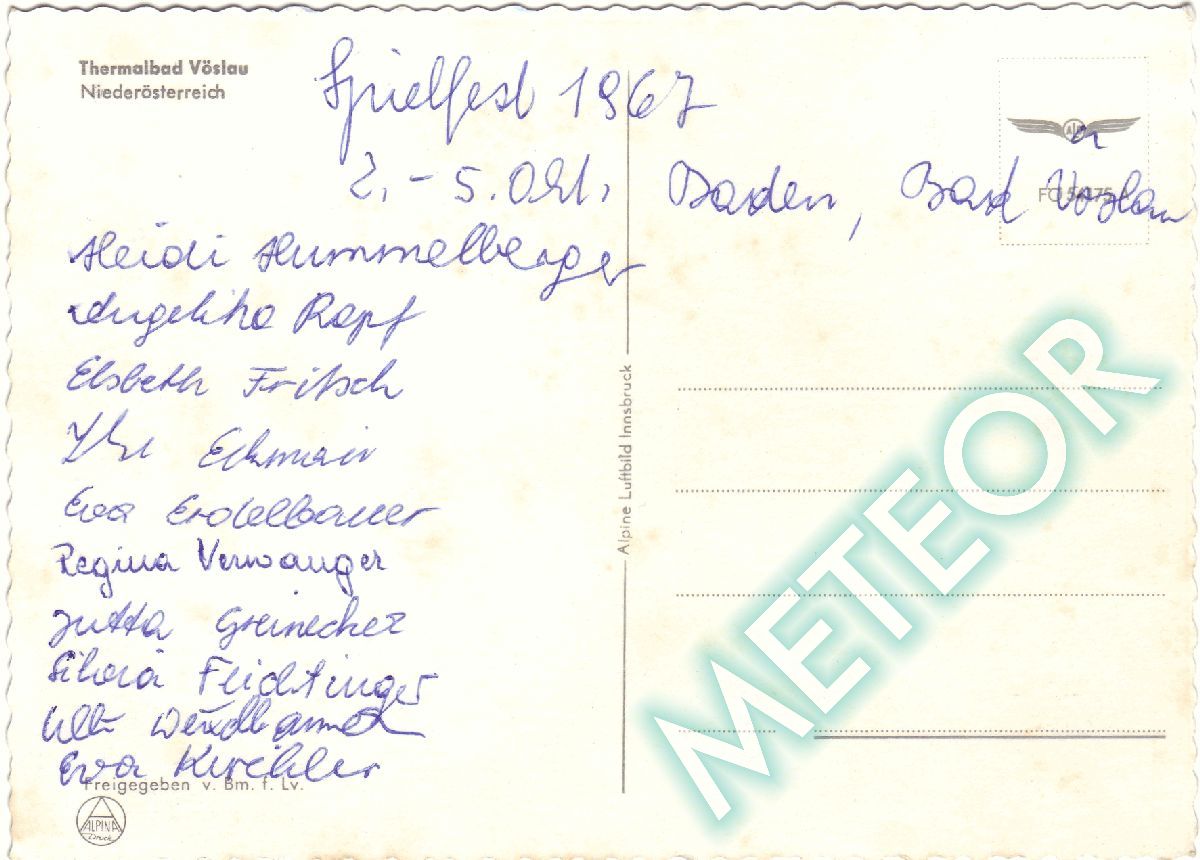 Thermalbad Vöslau
Niederösterreich
Spielfest 1967
2. - 5. Okt. Baden, Bad Vöslau
Heidi Hummelberger
Angelika Rapf
Elsbeth Fritsch
Eckmair
Eva Erdelbauer
Regina Verwanger
Jutta Greinecker
Silvia Feichtinger
Ulli
Eva Kirchler
Freigegeben v. Bm. f. Lv.
ALPINA
Druck
Alpine Luftbild Innsbruck
METEOR